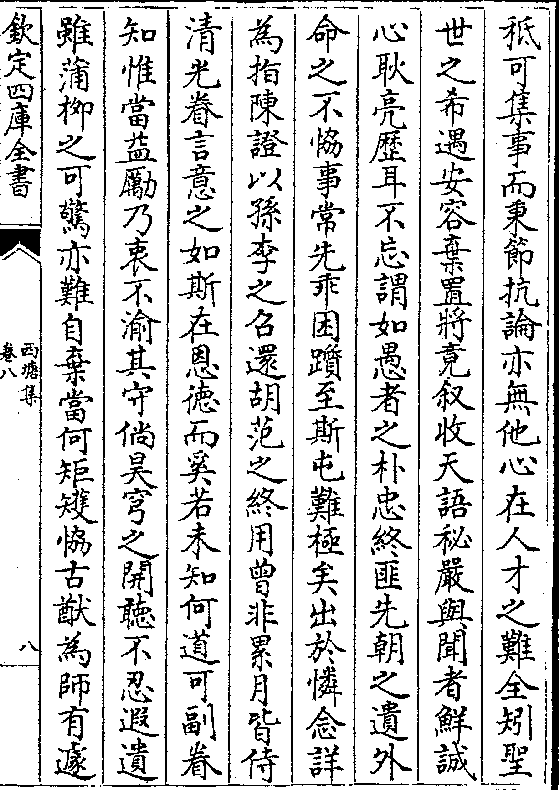 秪可集事而秉節抗論亦無他心在人才之難全矧聖
世之希遇安容棄置將竟叙收天語秘嚴與聞者鮮誠
心耿亮歷耳不忘謂如愚者之朴忠終匪先朝之遺外
命之不恊事常先乖困躓至斯屯難極矣出於憐念詳
為指陳證以孫李之召還胡范之終用曾非累月皆侍
清光眷言意之如斯在恩徳而奚若未知何道可副眷
知惟當益勵乃衷不渝其守倘昊穹之開聽不忍遐遺
雖蒲栁之可驚亦難自棄當何矩矱恊古猷為師有遽
欽定四庫全書
西塘集
卷八
八